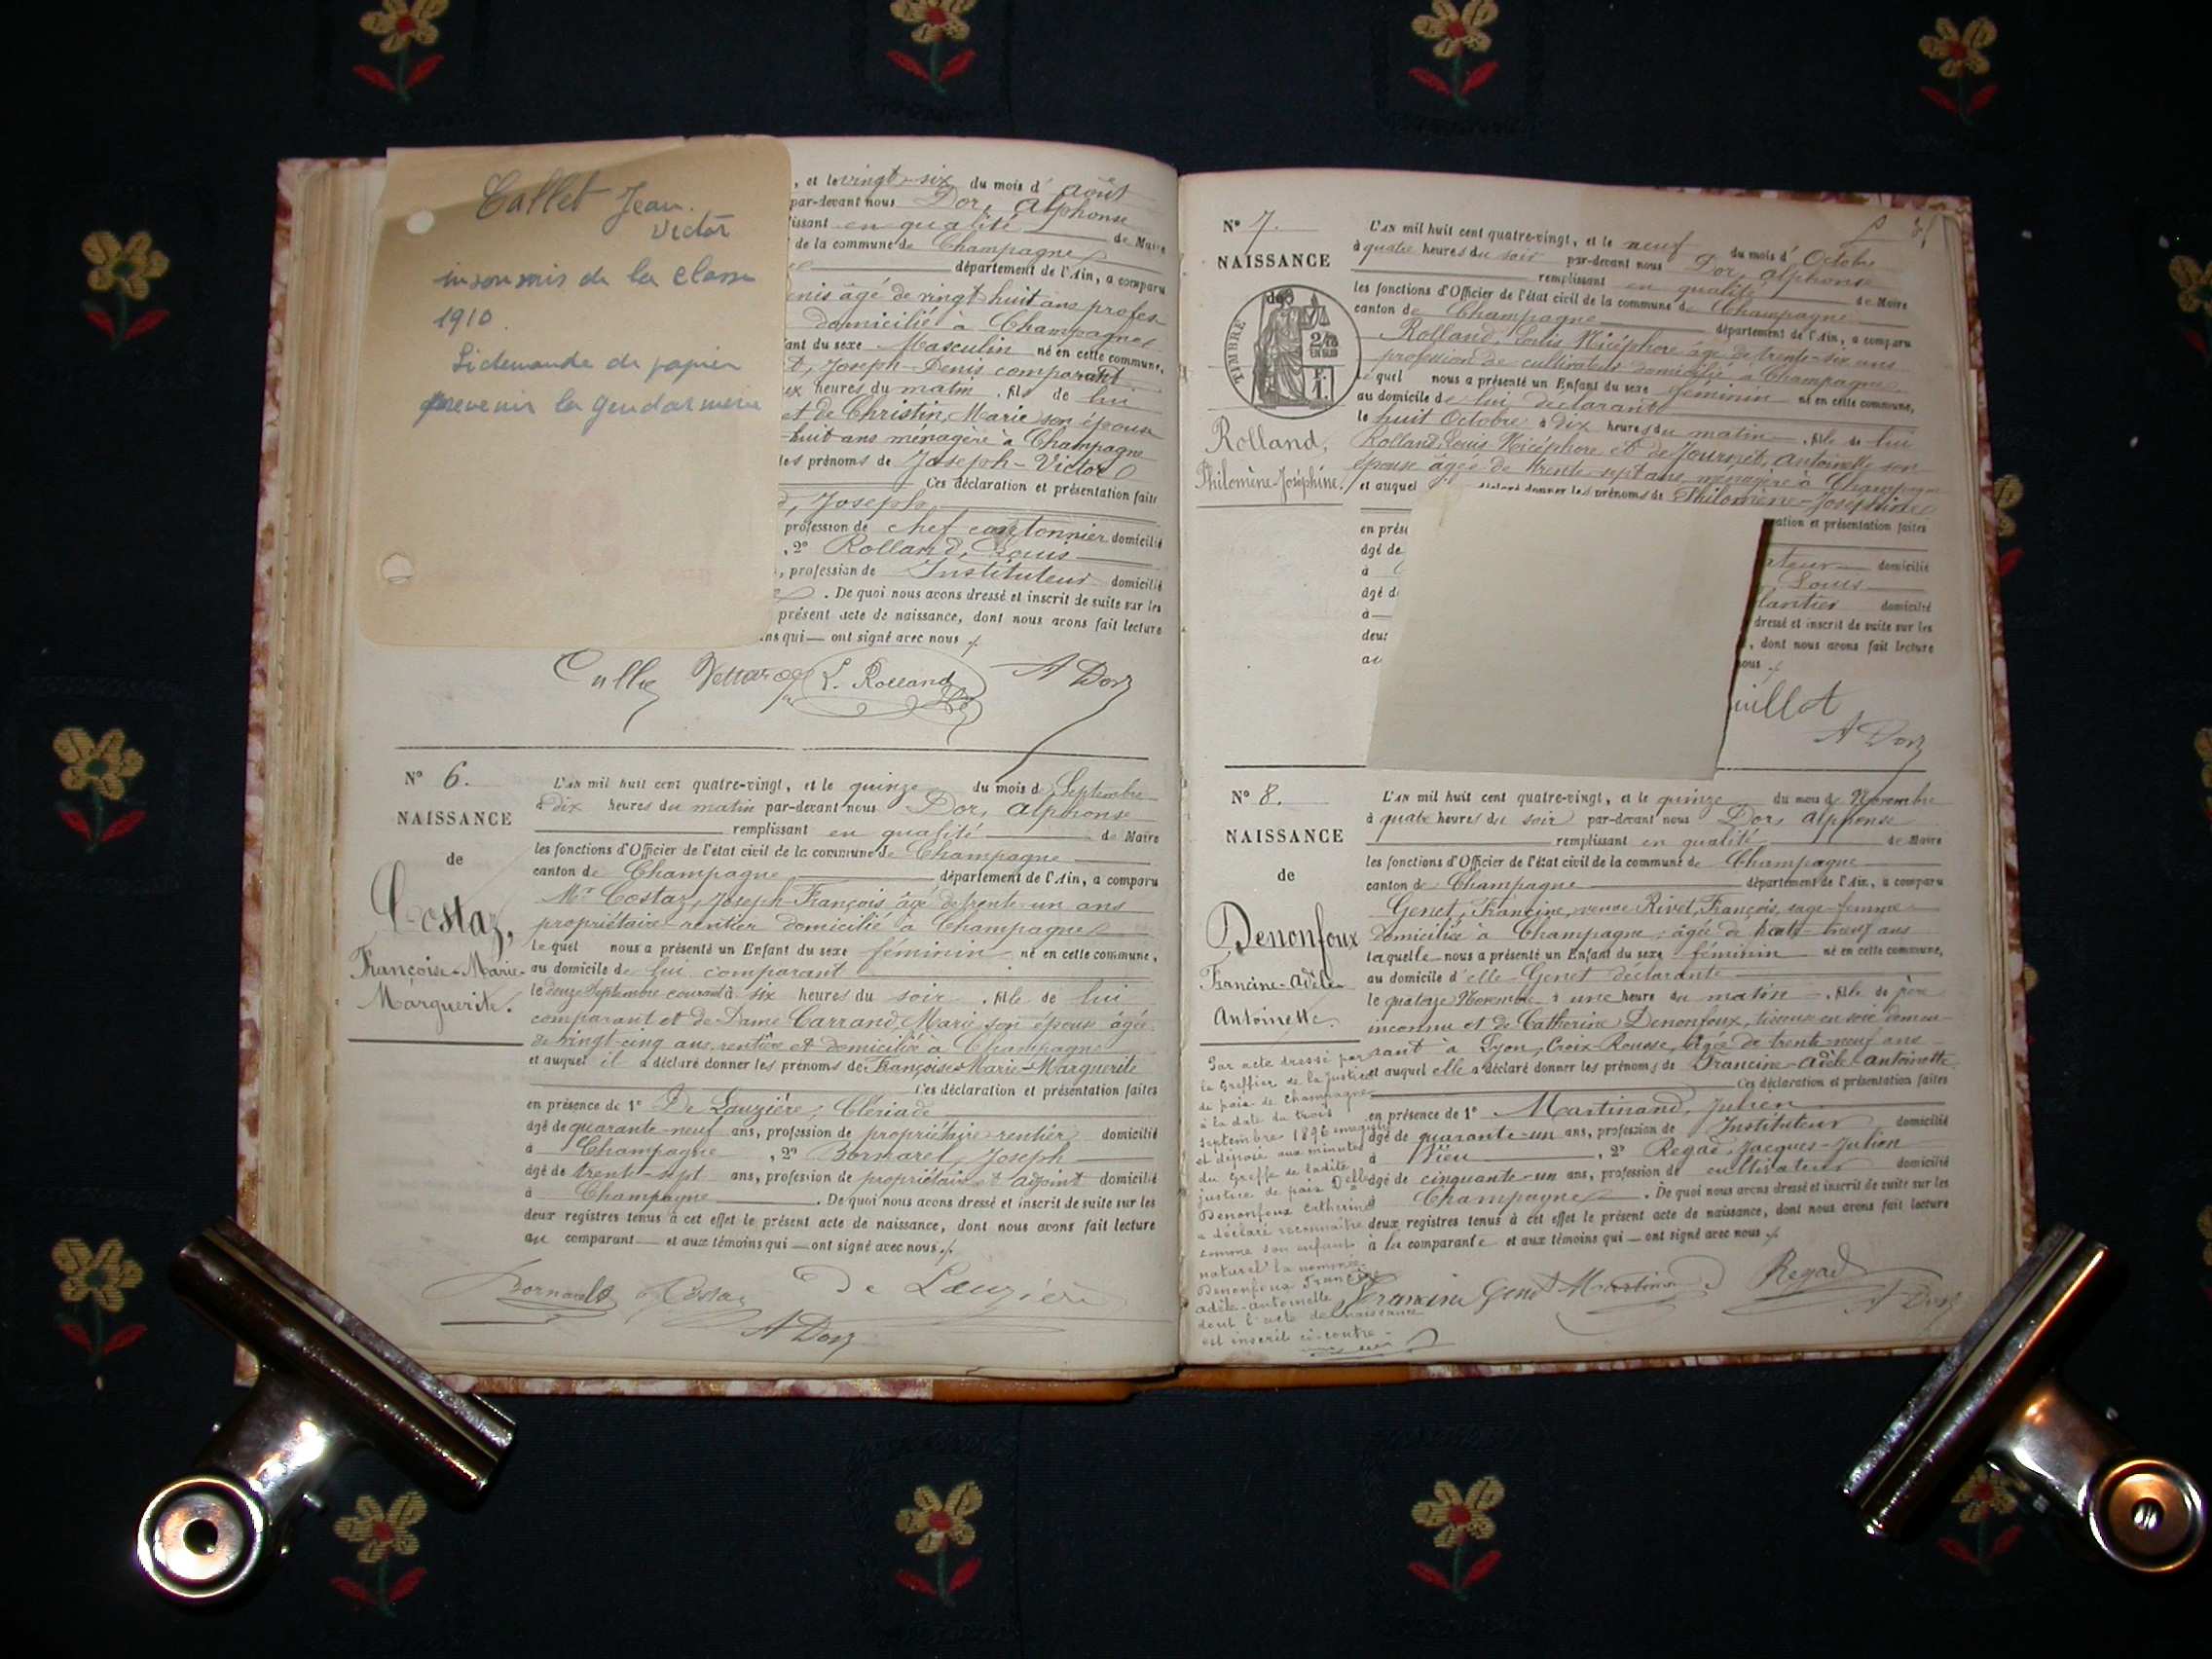 Callet Jean.
Victor
insoumis de la classe
1910.
Si demande de papier
prevenir la gendarmerie
, et le vingt-six du mois d' août
par-devant nous Dor, Alphonse
en qualité de Maire
de la commune de Champagne
département de l'Ain, a comparu
enis âgé de vingt huit ans profes-
domicilié à Champagne
ant du sexe Masculin né en cette commune,
t, Joseph-Denis comparant
ex heures du matin, fils de lui
et de Christin, Marie son épouse
-huit ans ménagère à Champagne
les prénoms de Joseph-Victor
Ces déclaration et présentation faites
d, Joseph
profession de chef cantonnier domicilié
, 2° Rolland, Louis
, profession de Instituteur domicilié
. De quoi nous avons dressé et inscrit de suite sur les
présent acte de naissance, dont nous avons fait lecture
ns qui — ont signé avec nous ./.
L. Rolland A Dor
N° 6.
NAISSANCE
de
Costaz,
Françoise-Marie-
Marguerite.
L'an mil huit cent quatre-vingt, et le quinze du mois de Septembre
à dix heures du matin par-devant nous Dor, Alphonse
remplissant en qualité de Maire
les fonctions d'Officier de l'état civil de la commune de Champagne
canton de Champagne département de l'Ain, a comparu
Mr Costaz, Joseph-François âgé de trente-un ans
propriétaire-rentier domicilié à Champagne
lequel nous a présenté un Enfant du sexe féminin né en cette commune,
au domicile de lui comparant
le douze Septembre courant à six heures du soir, fille de lui
comparant et de Dame Carrand, Marie son épouse âgée
de vingt-cinq ans, rentière et domiciliée à Champagne
et auquel il a déclaré donner les prénoms de Françoise-Marie-Marguerite
Ces déclaration et présentation faites
en présence de 1° De Lauzière, Clériade
âgé de quarante-neuf ans, profession de propriétaire-rentier domicilié
à Champagne, 2° Bornarel, Joseph
âgé de trente-sept ans, profession de propriétaire et adjoint domicilié
à Champagne. De quoi nous avons dressé et inscrit de suite sur les
deux registres tenus à cet effet le présent acte de naissance, dont nous avons fait lecture
au comparant — et aux témoins qui — ont signé avec nous ./.
Bornarel Costaz De Lauzière
A Dor
N° 7.
NAISSANCE
de
TIMBRE
Rolland,
Philomène-Joséphine.
L'an mil huit cent quatre-vingt, et le neuf du mois d' Octobre
à quatre heures du soir par-devant nous Dor, Alphonse
remplissant en qualité de Maire
les fonctions d'Officier de l'état civil de la commune de Champagne
canton de Champagne département de l'Ain, a comparu
Rolland, Louis Nicéphore âgé de trente-six ans
profession de cultivateur domicilié à Champagne
lequel nous a présenté un Enfant du sexe féminin né en cette commune,
au domicile de lui déclarant
le huit Octobre à dix heures du matin, fille de lui
Rolland, Louis Nicéphore et de Journet, Antoinette son
épouse âgée de trente-sept ans, ménagère à Champagne
et auquel déclaré donner les prénoms de Philomène-Joséphine
en prése ation et présentation faites
âgé de ateur domicilié
à Louis
âgé d domicilié
à dressé et inscrit de suite sur les
deux , dont nous avons fait lecture
au nous ./.
uillot
A Dor
N° 8.
NAISSANCE
de
Denonfoux
Francine-Adèle-
Antoinette.
L'an mil huit cent quatre-vingt, et le quinze du mois de Novembre
à quatre heures du soir par-devant nous Dor, Alphonse
remplissant en qualité de Maire
les fonctions d'Officier de l'état civil de la commune de Champagne
canton de Champagne département de l'Ain, a comparu
Genet, Francine, veuve Rivet, François, sage-femme
domiciliée à Champagne, âgée de neuf ans
laquelle nous a présenté un Enfant du sexe féminin né en cette commune,
au domicile d'elle Genet déclarante
le quatorze Novembre à une heure du matin, fille de père
inconnu et de Catherine Denonfoux, tisseuse en soie demeu-
rant à Lyon, Croix-Rousse, âgée de trente-neuf ans
et auquel elle a déclaré donner les prénoms de Francine-Adèle-Antoinette
Ces déclaration et présentation faites
en présence de 1° Martinand, Julien
âgé de quarante-un ans, profession de Instituteur domicilié
à Vieu, 2° Regad, Jacques-Julien
âgé de cinquante-un ans, profession de cultivateur domicilié
à Champagne. De quoi nous avons dressé et inscrit de suite sur les
deux registres tenus à cet effet le présent acte de naissance, dont nous avons fait lecture
à la comparante et aux témoins qui — ont signé avec nous ./.
Par acte dressé par
le Greffier de la Justice
de paix de Champagne
à la date du trois
Septembre 1896 enregistré
et déposé aux minutes
du Greffe de ladite
justice de paix Delle
Denonfoux Catherine
a déclaré reconnaître
comme son enfant
naturel la nommée
Denonfoux Francine
Adèle-Antoinette
dont l'acte de naissance
est inscrit ci-contre.
Francine Genet Martinand Regad
A Dor